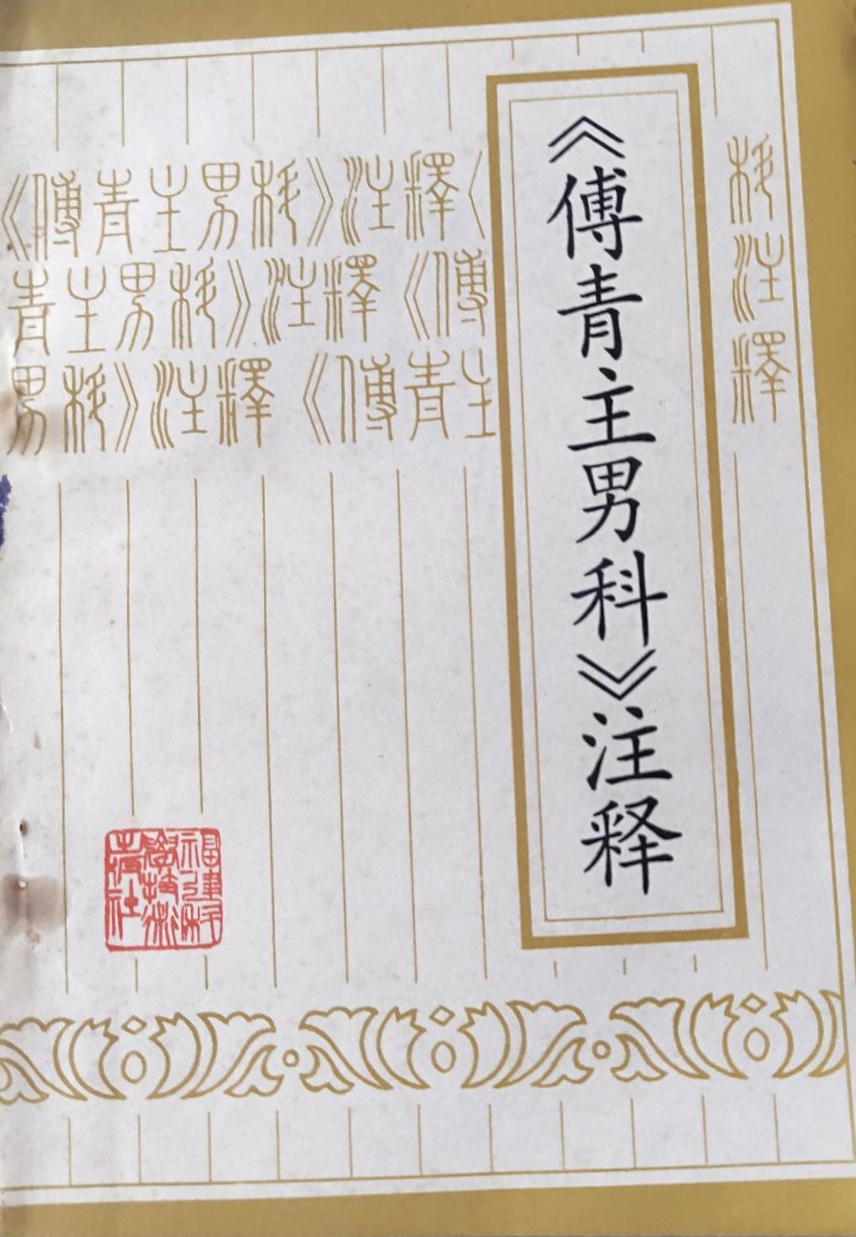 《傅青主男科》注释
《傅青主男科》注釋《
青主男科》注釋《傅
男科》注釋《傅青主
科注釋
福建科
學技術
出版社